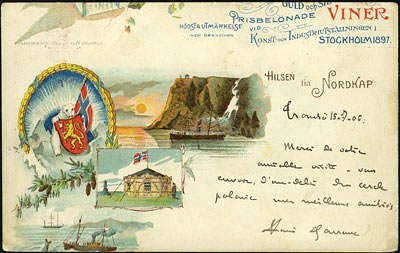 GULD och
PRISBELÖNADE VINER
HÖGSTA UTMÄRKELSE VID
INOM BRANSCHEN KONST- och INDUSTRIUTSTÄLLNINGEN i
STOCKHOLM 1897.
HILSEN fra NORDKAP
Tromsö 15-7-06.
Merci de votre
aimable visite - vous
envoie, d'au-delà du cercle
polaire mes meilleures amitiés,